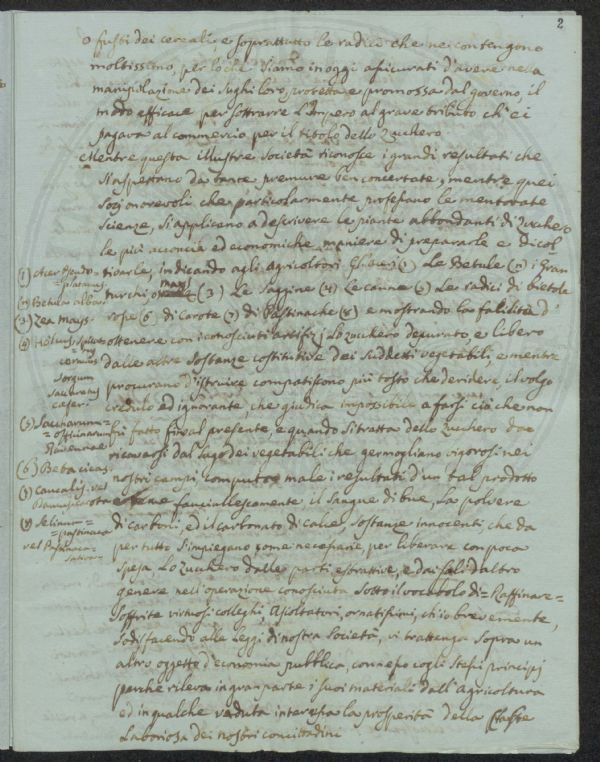 2
o fusti dei cereali, e soprattutto le radici che ne contengono
moltissimo, per lo che siamo in oggi assicurati d'avere nella
manipolazione dei sughi loro, protetta e promossa dal governo, il
modo efficace per sottrarre l'Impero al grave tributo ch'ei
pagava al commercio per il titolo dello Zucchero
Mentre questa illustre Società riconosce i grandi resultati che
s'aspettano da tante premure ben concertate, mentre quei
Socj onorevoli che particolarmente professano le mentovate
scienze, si applicano a descrivere le piante abbondanti di zucchero
le più acconcie ed economiche maniere di prepararle e di col-
tivarle, indicando agli agricoltori gl'aceri (1) Le Betule (2) i gran
turchi o mays (3) Le Saggine (4) Le canne (5) Le radici di bietola
rape (6) di Carote (7) di Pastinache (8) e mostrando la falilità d'
ottenere con i conosciuti artifizj Lo zucchero depurato, e libero
dalle altre sostanze costitutive dei suddetti vegetabili, e mentre
procurano d'istruire compatiscono più tosto che deridere, il volgo
credulo ed ignorante, che giudica impossibile a farsi ciò che non
fu fatto fino al presente, e quando si tratta dello Zucchero da
ricavarsi dal sugo dei vegetabili che germogliano vigorosi nei
nostri campi, computa male i resultati d'un tal prodotto
e teme fanciullescamente il Sangue di bue, La polvere
di carboni, ed il carbonato di calce, sostanze innocenti, che da
per tutto s'impiegano come necessarie per liberare con poca
spesa Lo Zucchero dalle parti estrattive, e dai sali d'altro
genere nell'operazione conosciuta sotto il vocabolo di = Raffinare =
Soffrite virtuosi colleghi, Ascoltatori, ornatissimi, ch'io brevemente,
sodisfacendo alle Leggi di nostra Società, vi trattenga sopra un
altro oggetto d'economia pubblica, connesso cogli stessi principj
perché rileva in gran parte i suoi materiali dall'agricoltura
ed in qualche veduta interessa la prosperità della Classe
Laboriosa dei nostri concittadini
(1) Acer Pseudo-
=platanus.
(2) Betula alba
(3) Zea mays.
(4) Holcus
cernuus
Sorgum
Saccaratus
cafer.
(5) Saccharum=
= officinarum
(6) Beta cicas.
(7) Caucalis, vel
(8) Selinum=
=pastinaca
vel Pastinaca
Sativa=